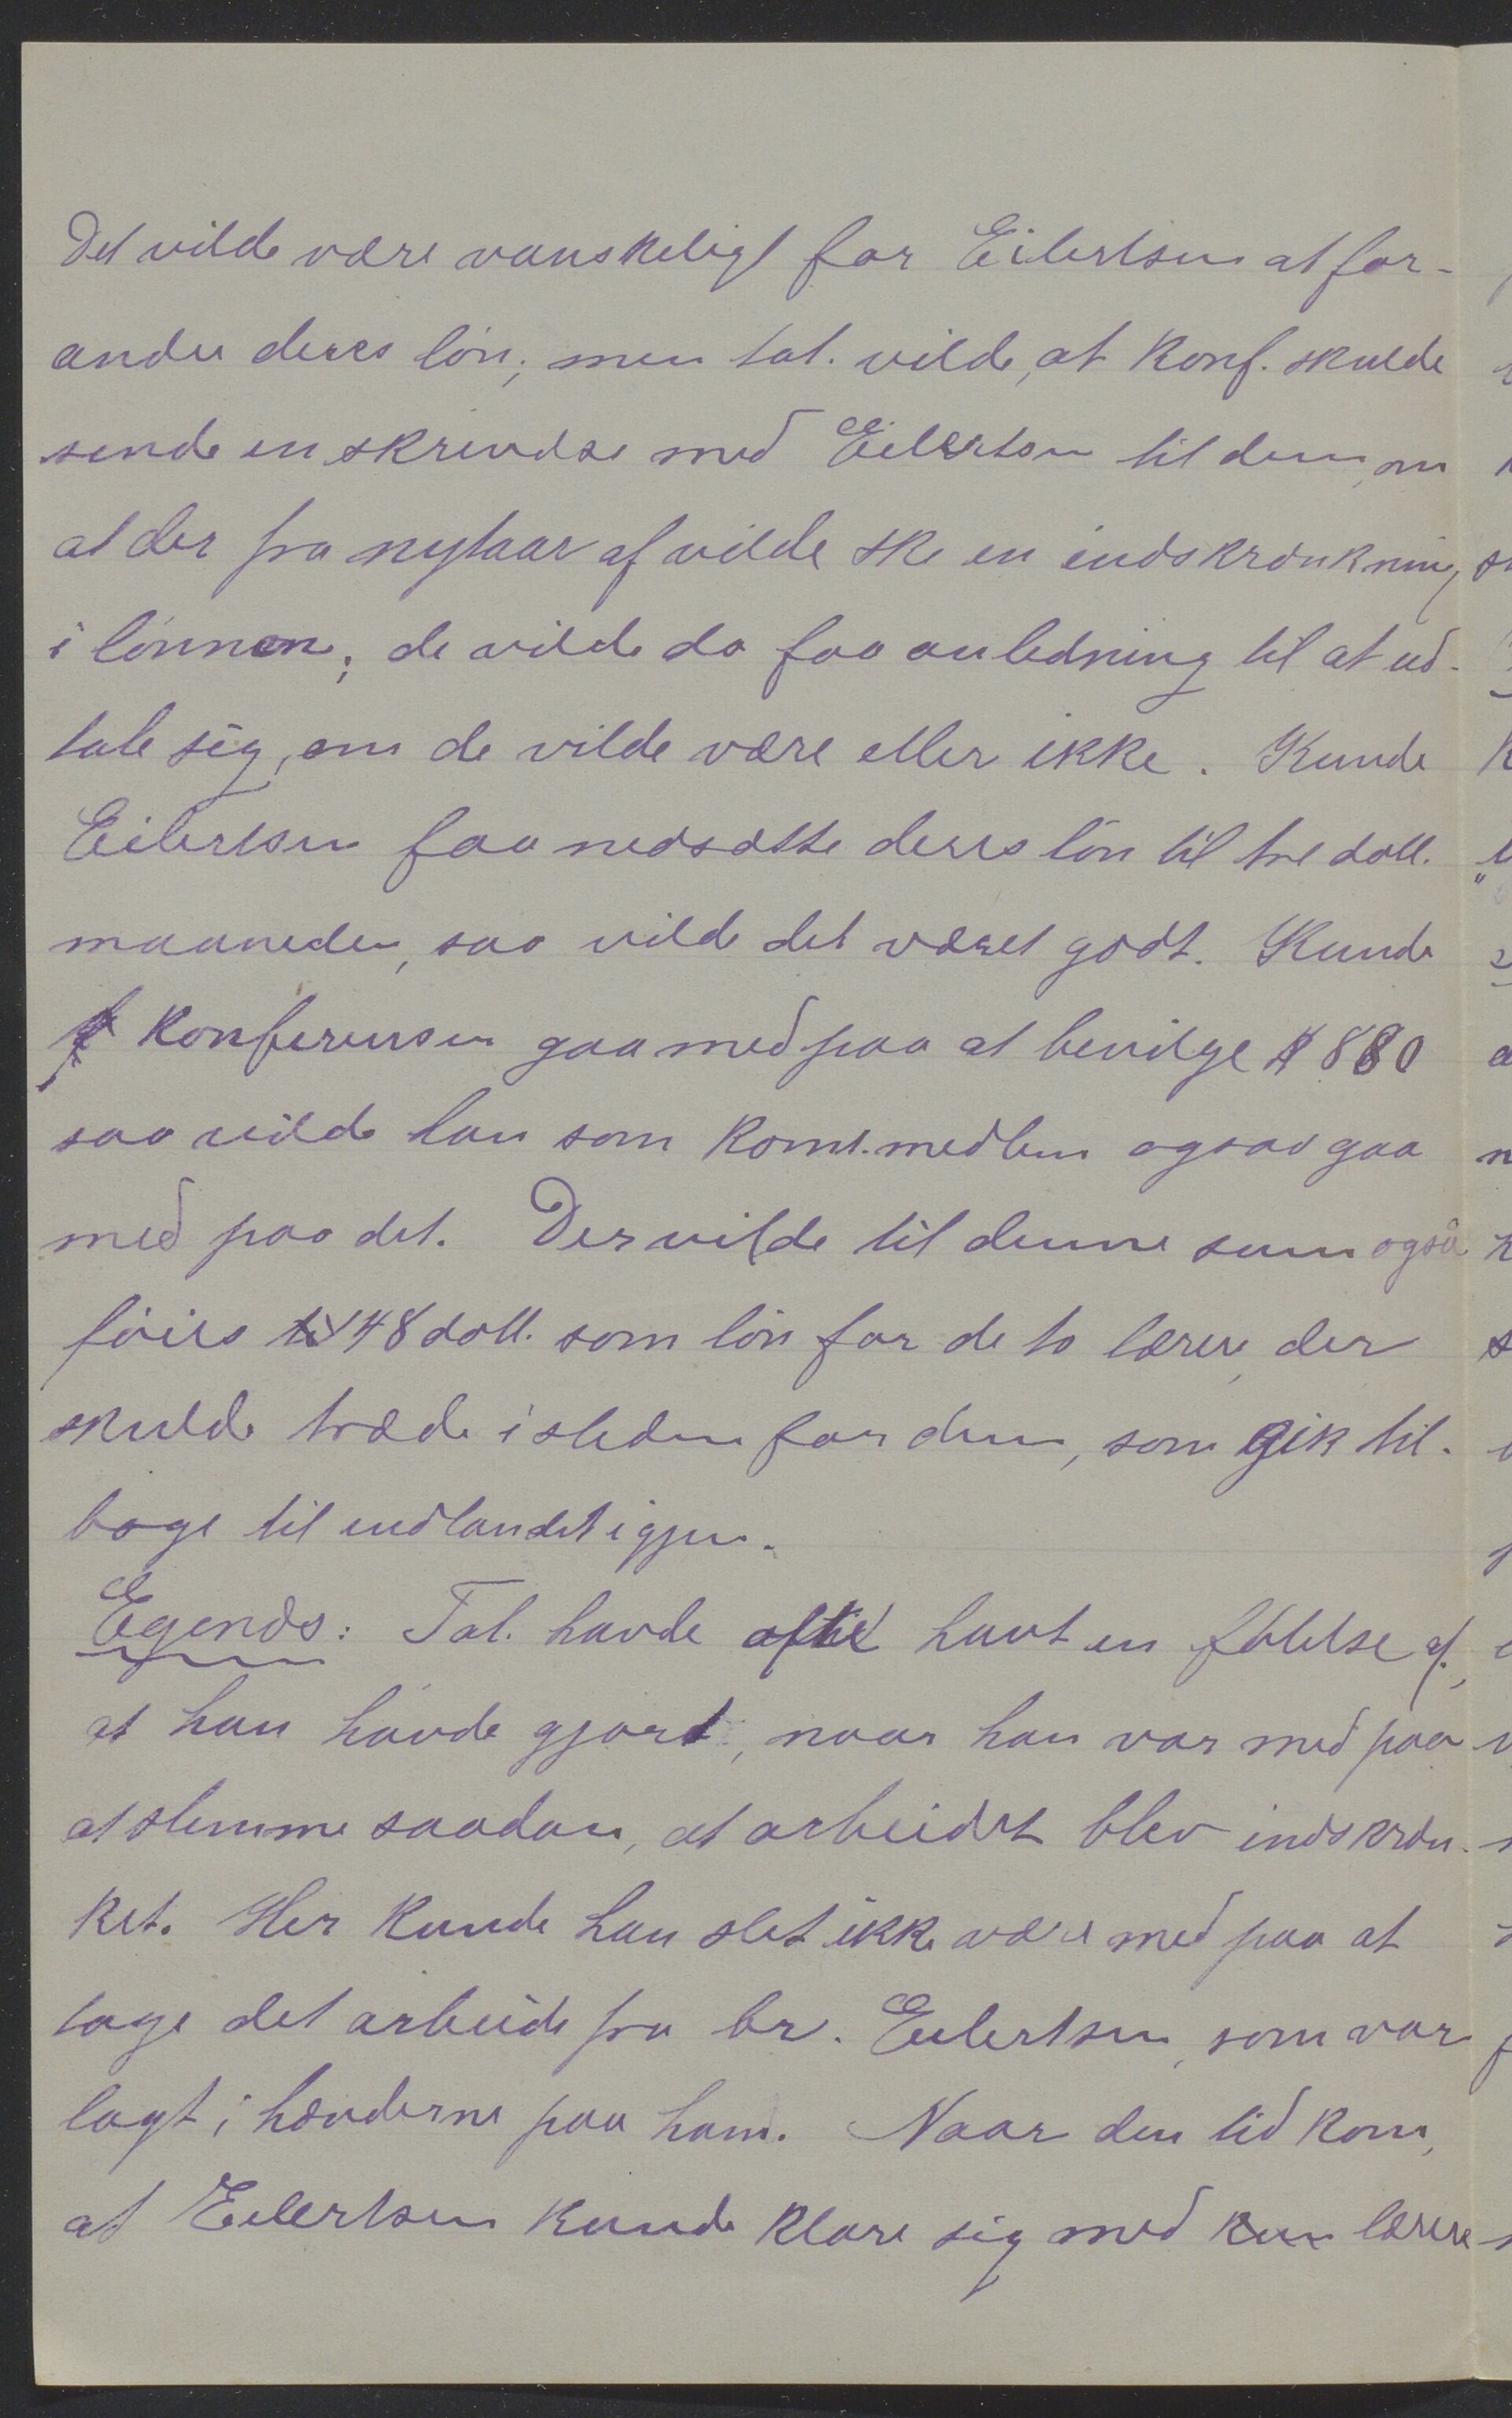 Det vilde være vanskeligt for Eilertsen at for-
andre deres lön; men tal. vilde, at Konf. skulde
sende en skrivelse med Eilertsen til dem, om
at der fra nytaar af vilde ske en indskrænkning
i lönnen; de vilde da faa anledning til at ud-
tale sig, om de vilde være eller ikke. Kunde
Eilertsen faa nedsætte deres lön til tre doll.
maaneden, saa vilde det været godt. Kunde
Konferensen gaa med paa at bevilge $ 880
saa vilde han som Komt.medlem ogsaa gaa
med paa det. Der vilde til denne sum også
föies 48 doll. som lön for de to lærere, der
skulde træde istedenfor dem, som gik til-
bage til indlandet igjen.
Egenæs: Tal. havde ofte havt en fölelse af,
at han havde gjort, naar han var med paa
at stemme saadan, at arbeidet blev indskræn-
ket. Her kunde han slet ikke være med paa at
tage det arbeide fra br. Eilertsen, som var
lagt i hænderne paa ham. Naar den tid kom,
at Eilertsen kunde klare sig med kun lærere